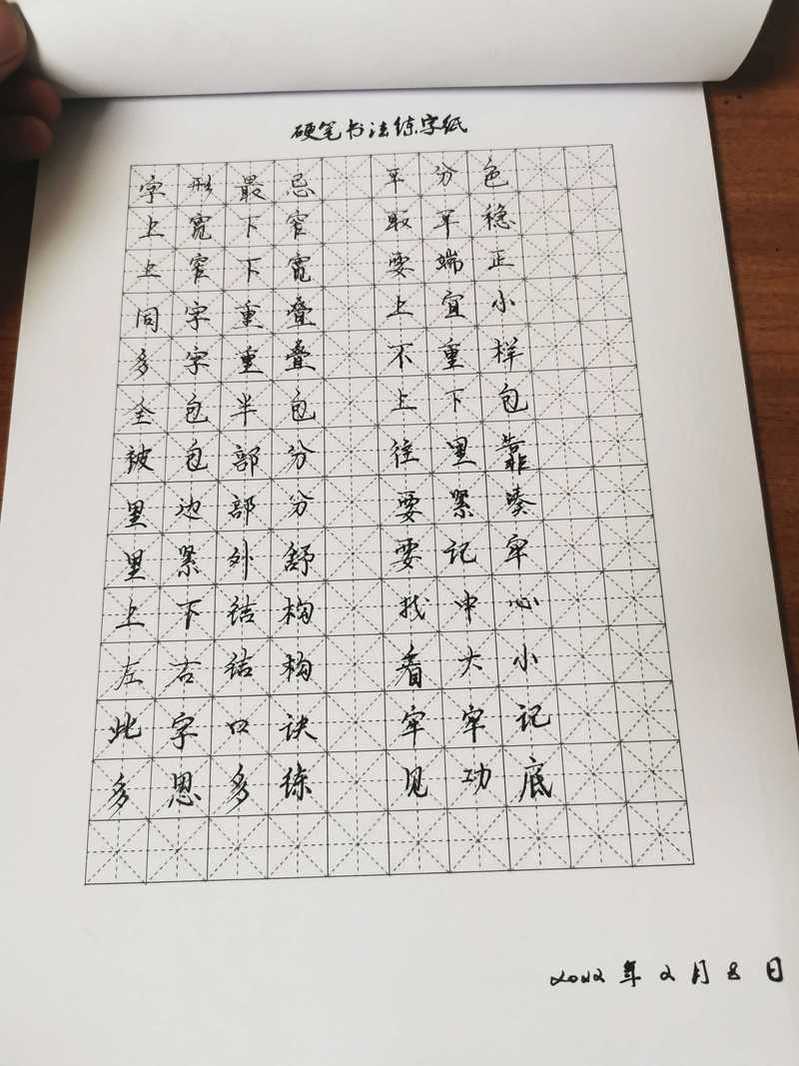 硬笔书法练字纸
字形最忌 平分色
上宽下窄 取平稳
上窄下宽 要端正
同字重叠 上宜小
多字重叠 不重样
全包半包 上下包
被包部分 往里靠
里边部分 要紧凑
里紧外舒 要记牢
上下结构 找中心
左右结构 看大小
此字口诀 牢牢记
多思多练 见功底
2022年2月8日